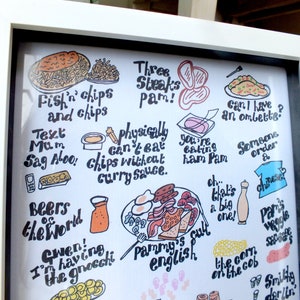 Fish 'n' chips
and chips
Three
Steaks
Pam!
can I have
an ombette?
Text
Mum
Sag Aloo!
physically
can't eat
chips without
curry sauce.
you're
eating
ham Pam
Someone
order
a
Beers
of
the World
oh...
that's
a big
one!
Pam's
veggie
Gwen!
I'm having
the gnocchi!
Pammy's full
english
the corn
on the cob
Smidge